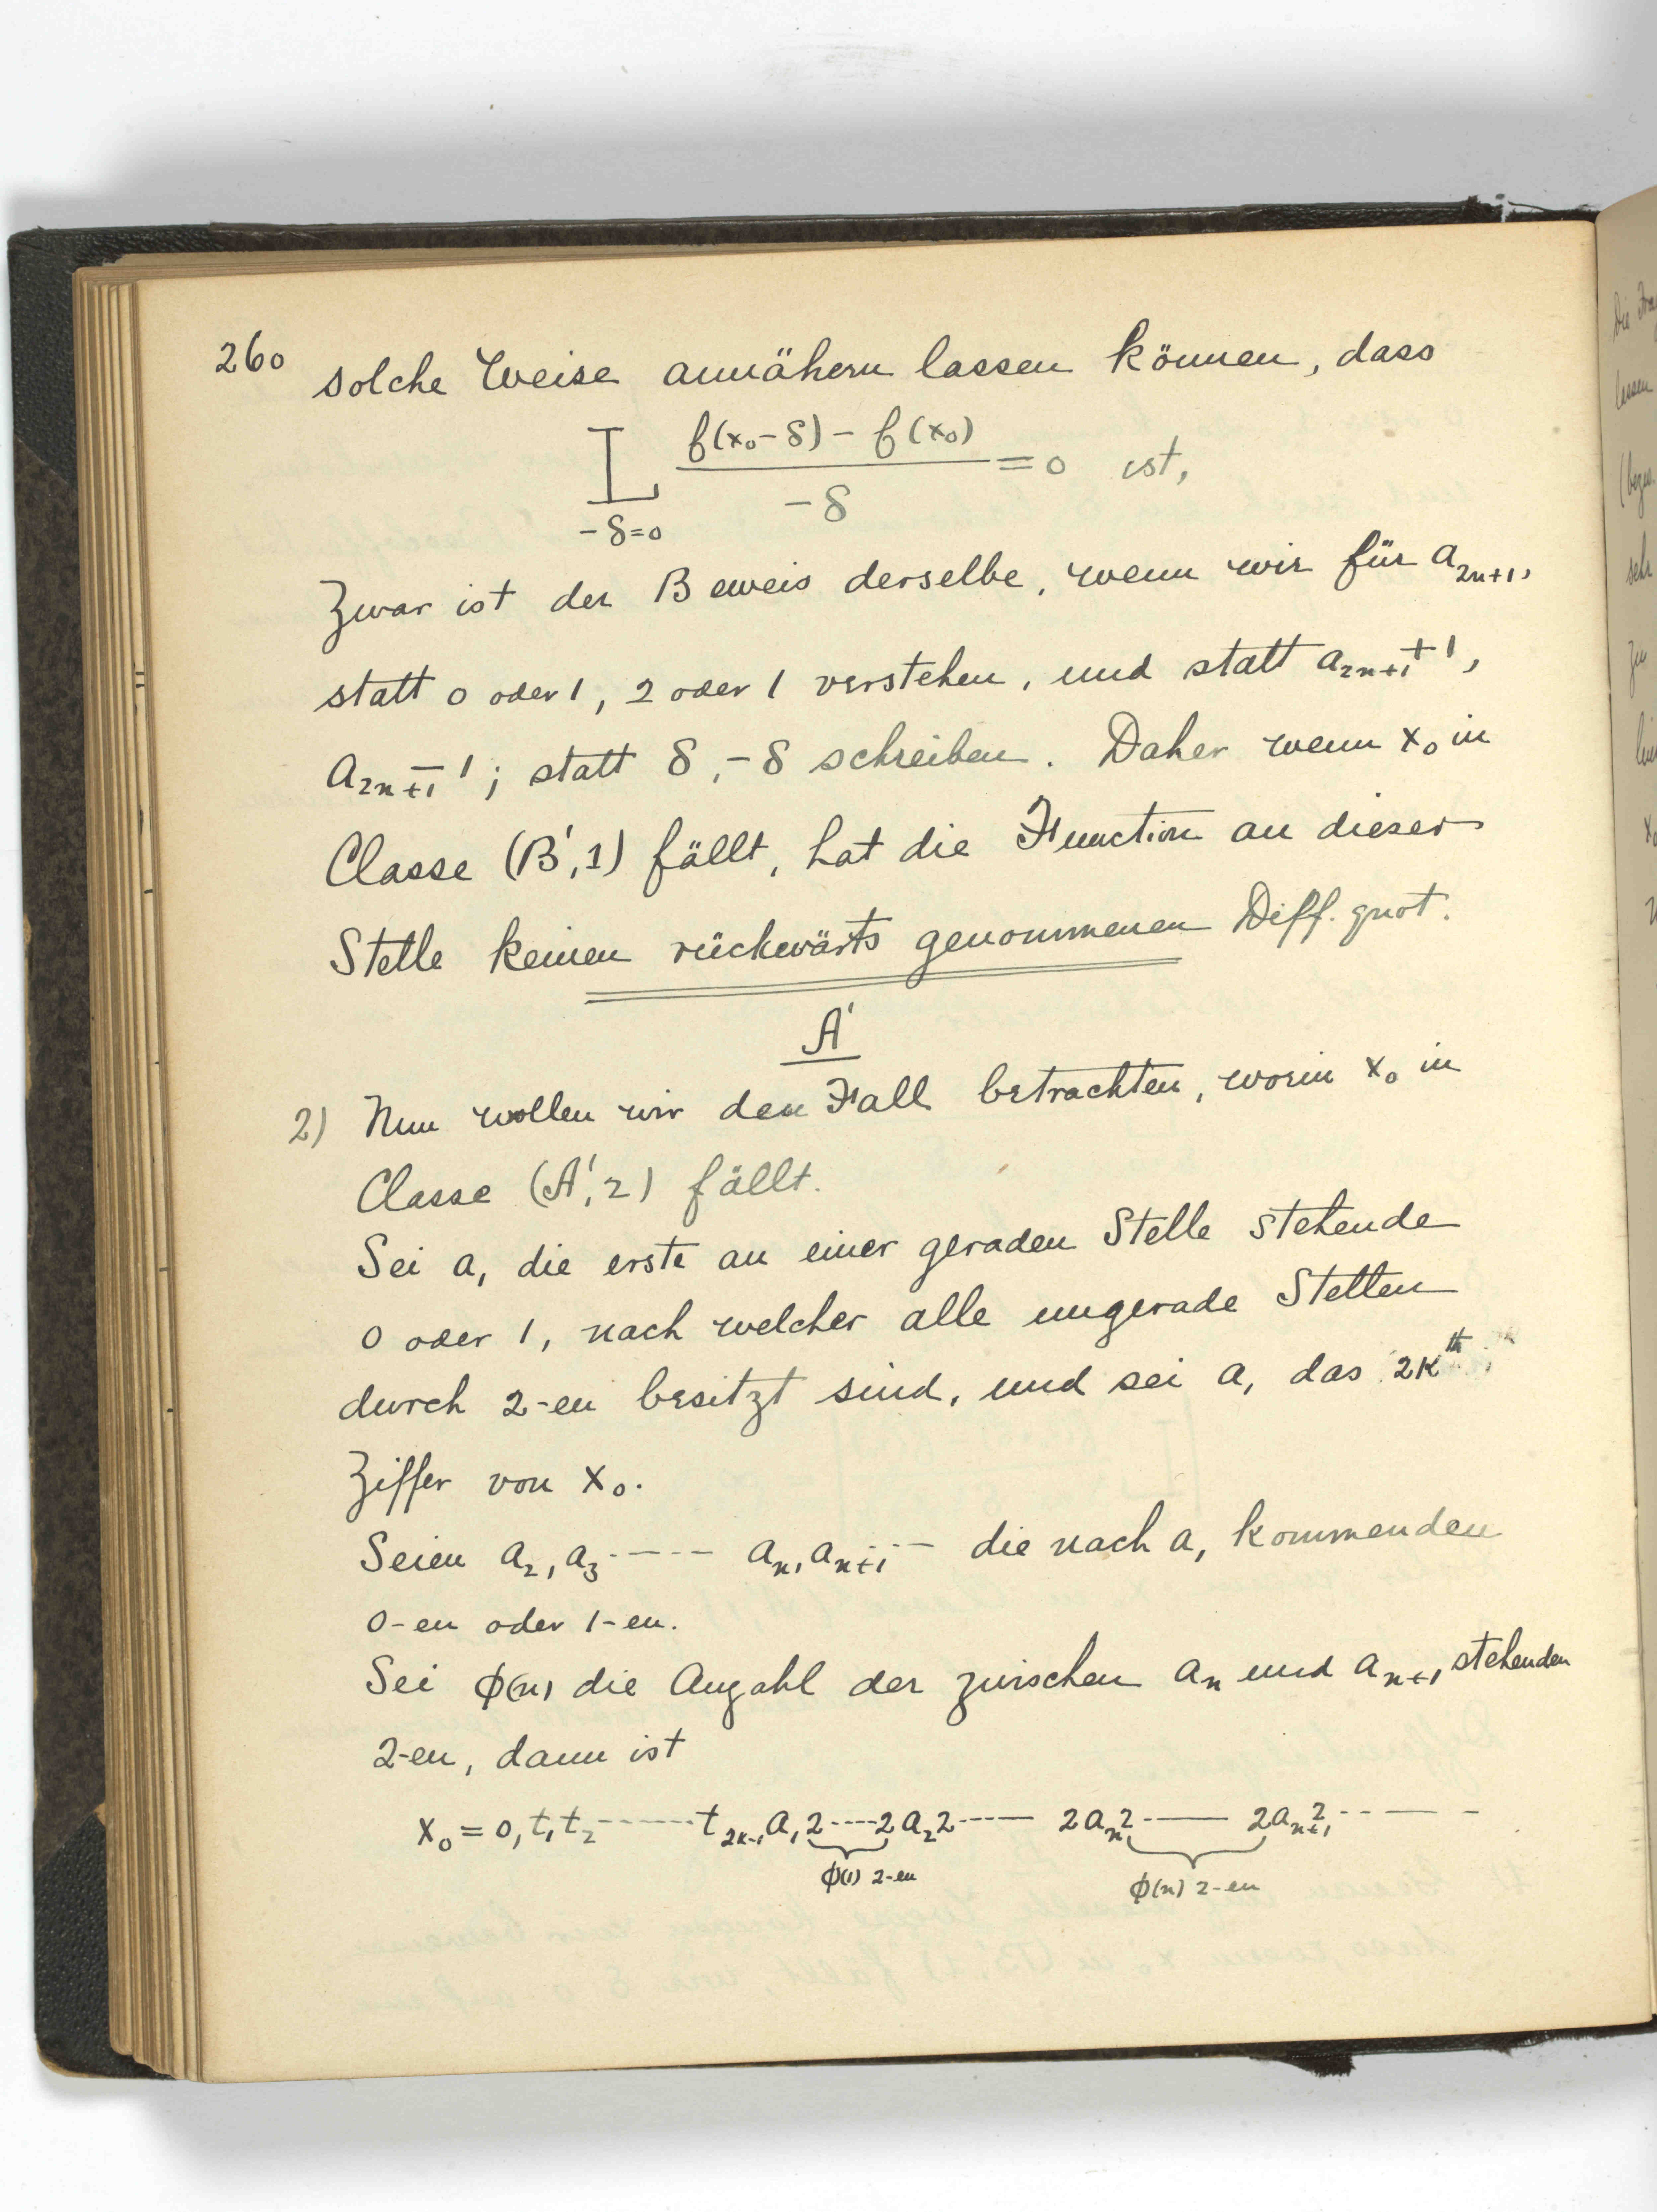 260 solche Weise annähern lassen können, dass
L f(x₀-δ) - f(x₀) / -δ = 0 ist,
-δ=0
Zwar ist der Beweis derselbe, wenn wir für a₂ₙ₊₁,
statt 0 oder 1, 2 oder 1 verstehen, und statt a₂ₙ₊₁+1,
a₂ₙ₊₁-1; statt δ, -δ schreiben. Daher wenn x₀ in
Classe (B',1) fällt, hat die Function an dieser
Stelle keinen rückwärts genommenen Diff. quot.
A'
2) Nun wollen wir den Fall betrachten, worin x₀ in
Classe (A',2) fällt.
Sei a₁ die erste an einer geraden Stelle stehende
0 oder 1, nach welcher alle ungerade Stellen
durch 2-en besitzt sind, und sei a₁ das 2κᵗʰ
Ziffer von x₀.
Seien a₂, a₃ ---- aₙ, aₙ₊₁ -- die nach a₁ kommenden
0-en oder 1-en.
Sei ϕ(n) die Anzahl der zwischen aₙ und aₙ₊₁ stehenden
2-en, dann ist
x₀ = 0, t₁t₂ ------ t₂κ₋₁a₁2----2a₂2---- 2aₙ2---- 2aₙ₊₁2-----
ϕ(1) 2-en ϕ(n) 2-en